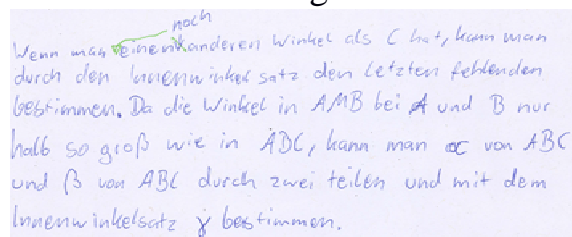 noch
Wenn man einen anderen Winkel als C hat, kann man
durch den Innenwinkelsatz den letzten fehlenden
bestimmen. Da die Winkel in AMB bei A und B nur
halb so groß wie in ADC, kann man α von ABC
und β von ABC durch zwei teilen und mit dem
Innenwinkelsatz γ bestimmen.